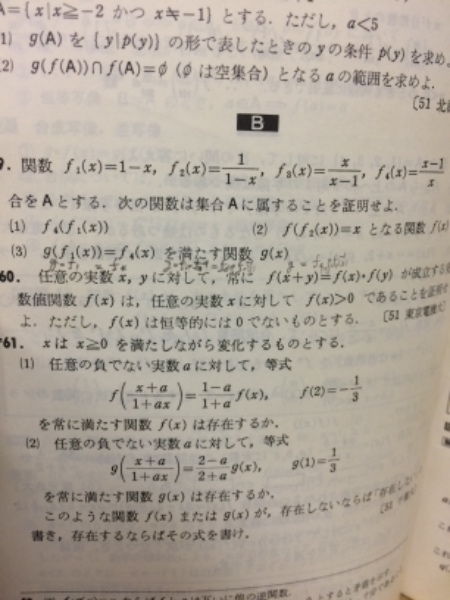 A={x|x≧-2 かつ x≠-1} とする. ただし, a<5
(1) g(A) を {y|p(y)} の形で表したときの y の条件 p(y) を求め
(2) g(f(A))∩f(A)=φ (φ は空集合) となる a の範囲を求めよ.
〔51 北
B
9. 関数 f₁(x)=1-x, f₂(x)=1/(1-x), f₃(x)=x/(x-1), f₄(x)=(x-1)/x
合を A とする. 次の関数は集合 A に属することを証明せよ.
(1) f₄(f₁(x)) (2) f(f₂(x))=x となる関数 f(x)
(3) g(f₁(x))=f₄(x) を満たす関数 g(x)
60. 任意の実数 x, y に対して, 常に f(x+y)=f(x)・f(y) が成立する
数値関数 f(x) は, 任意の実数 x に対して f(x)>0 であることを証明せ
よ. ただし, f(x) は恒等的には 0 でないものとする. 〔51 東京電機大〕
*61. x は x≧0 を満たしながら変化するものとする.
(1) 任意の負でない実数 a に対して, 等式
f((x+a)/(1+ax))=(1-a)/(1+a) f(x), f(2)=-1/3
を常に満たす関数 f(x) は存在するか.
(2) 任意の負でない実数 a に対して, 等式
g((x+a)/(1+ax))=(2-a)/(2+a) g(x), g(1)=1/3
を常に満たす関数 g(x) は存在するか.
このような関数 f(x) または g(x) が, 存在しないならば「存在し
書き, 存在するならばその式を書け. 〔51